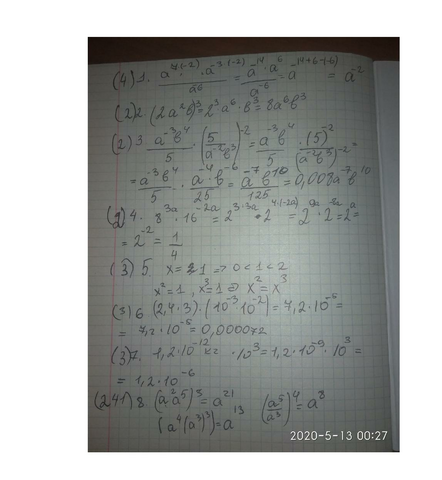 (4) 1. a^7·(-2) · a^-3·(-2) / a^6 = a^-14 · a^6 / a^-6 = a^-14+6-(-6) = a^-2
(2) 2. (2a²b)³ = 2³a⁶·b³ = 8a⁶b³
(2) 3. a^-3b⁴/5 · (5/a^-2b³)^-2 = a^-3b⁴/5 · (5)^-2/(a^-2b³)^-2 =
= a^-3b⁴/5 · a^-4b^-6/25 = a^-7b^10/125 = 0,008a^-7b^10
(2) 4. 8^3a · 16^-2a = 2^3·3a · 2^4·(-2a)
= 2^-2 = 1/4
(3) 5. x = 1 => 0 < 1 < 2
x² = 1, x³ = 1 => x² = x³
(3) 6 (2,4·3)·(10^-3 10^-2) = 7,2·10^-5 =
= 7,2·10^-5 = 0,000072
(3) 7. 1,2·10^-12 кг · 10³ = 1,2·10^-9 · 10³ =
= 1,2·10^-6
(241) 8 (a²a⁵)³ = a^21 (a⁵/a³)⁴ = a⁸
(a⁴(a³)³) = a^13
2020-5-13 00:27